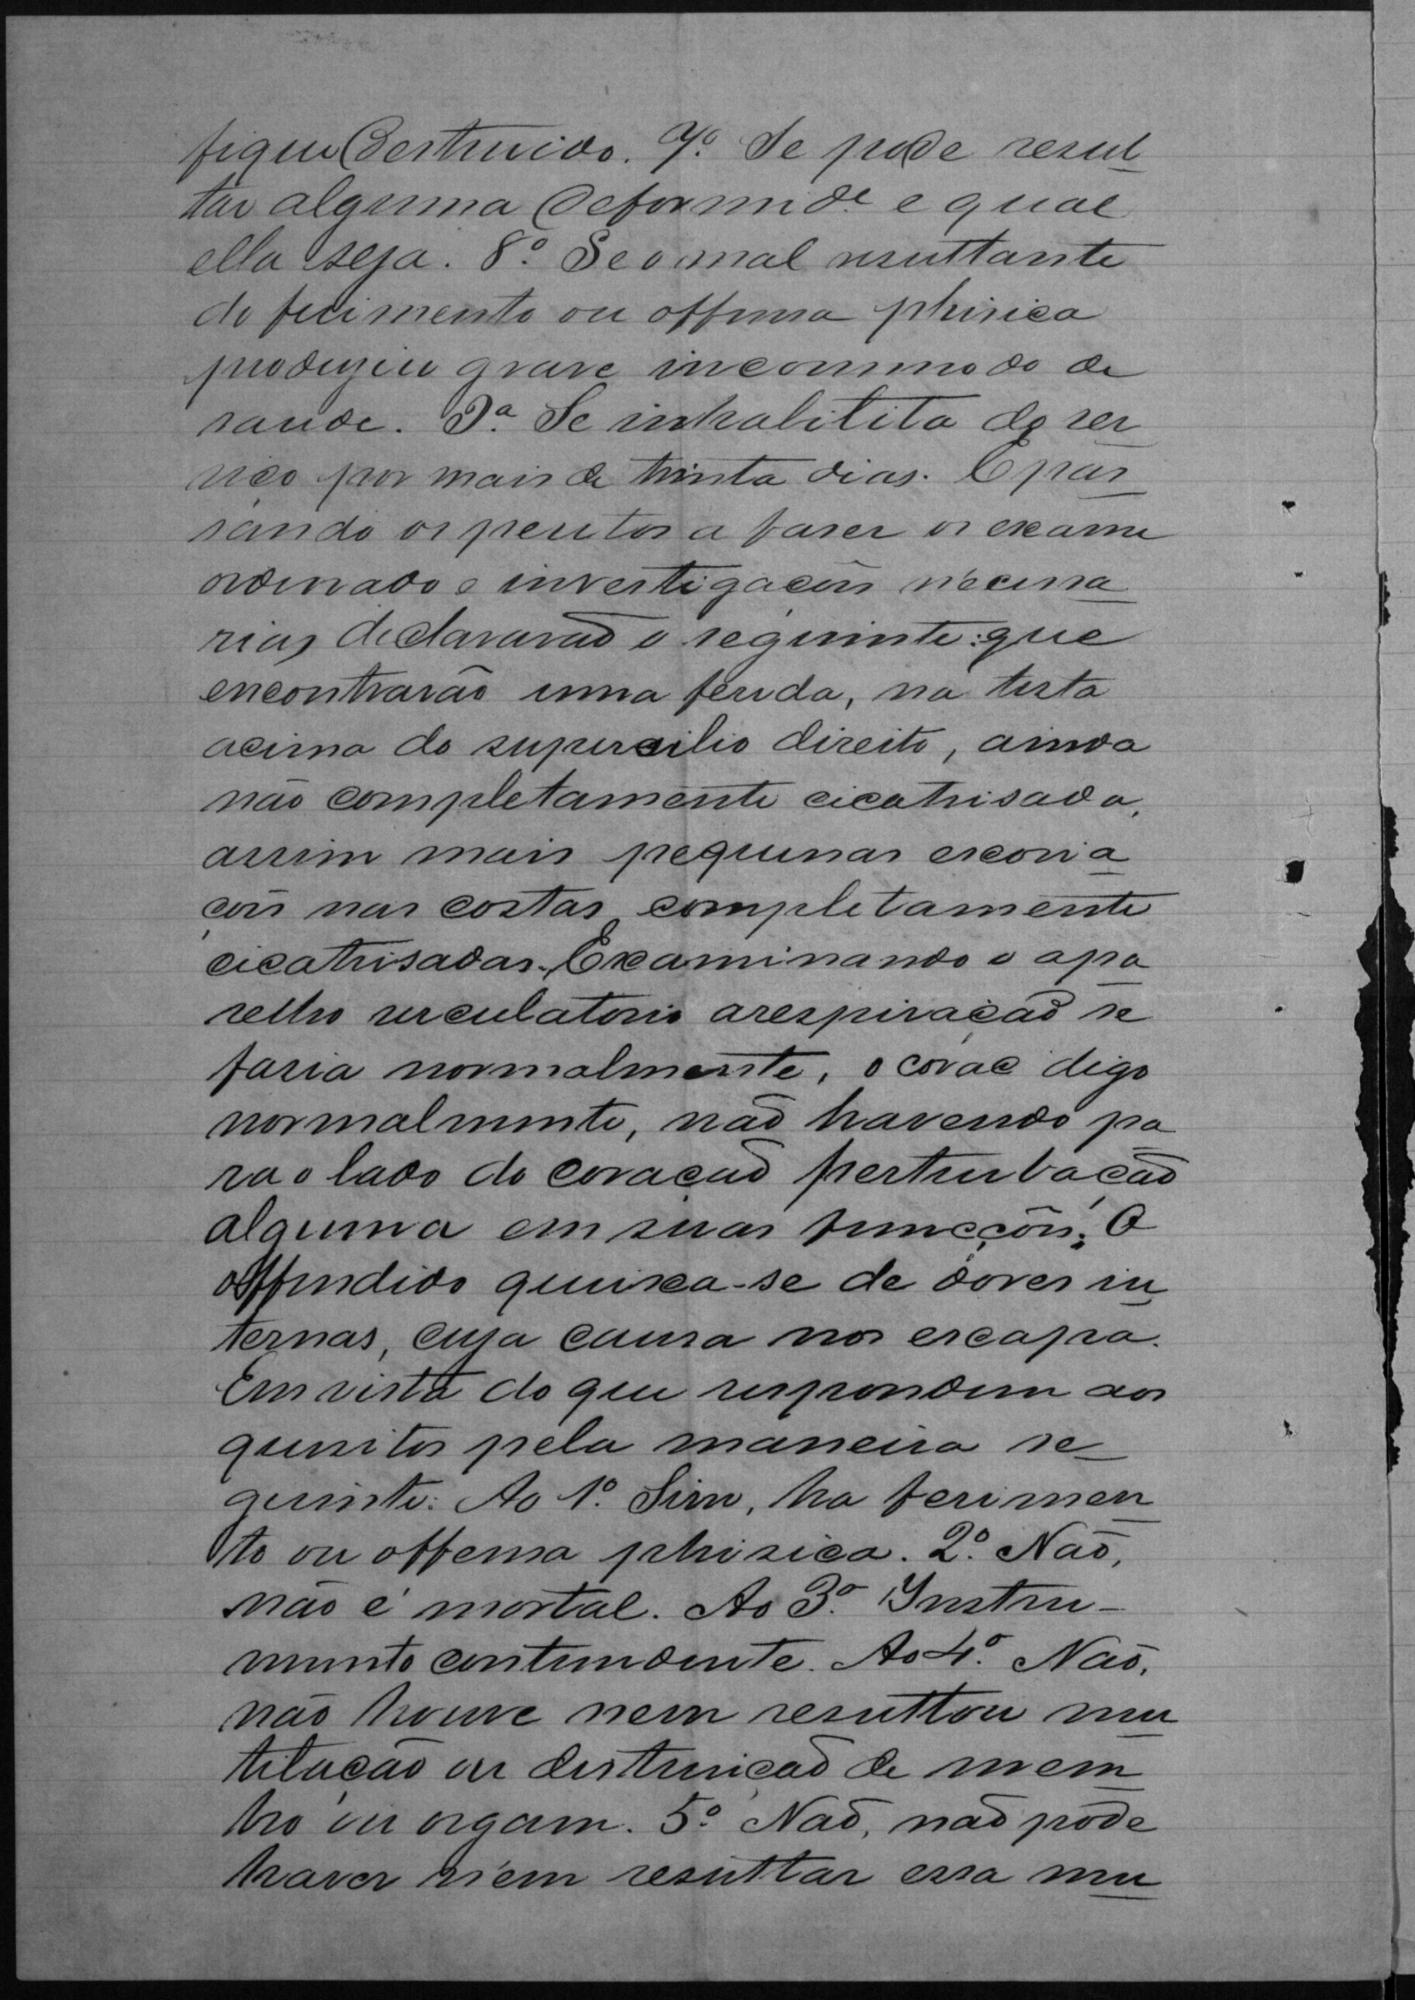 fique destruido. 7º Se pode resul
tar alguma deformidᵉ e qual
ella seja. 8º Se o mal resultante
do ferimento ou offensa phisica
produziu grave incommodo de
saude. 9ª Se inhabilita do ser
viço por mais de trinta dias. E pas
sando os peritos a faser os exame
ordenado e investigações necessa
rias, declararaõ o seguinte: que
encontrarão uma ferida, na testa
acima do supercilio direito, ainda
não completamente cicatrisada,
assim mais pequenas escoria
çoẽs nas costas completamente
cicatrisadas. Examinando o apa
relho circulatorio a respiração se
fasia normalmente, o corac digo
normalmente, naõ havendo pa
ra o lado do coração perturbação
alguma em suas funcçoẽs. O
offendido queixa-se de dores in
ternas, cuja causa nos escapa.
Em vista do que respondem aos
quesitos pela maneira se
guinte: Ao 1º. Sim, ha ferimen
to ou offensa phisica. 2º. Naõ,
não é mortal. Ao 3º. Instru-
mento contundente. Ao 4º. Naõ,
não houve nem resultou mu
tilação ou destruiçaõ de mem
bro ou orgam. 5º Naõ, naõ pode
haver nem resultar essa mu